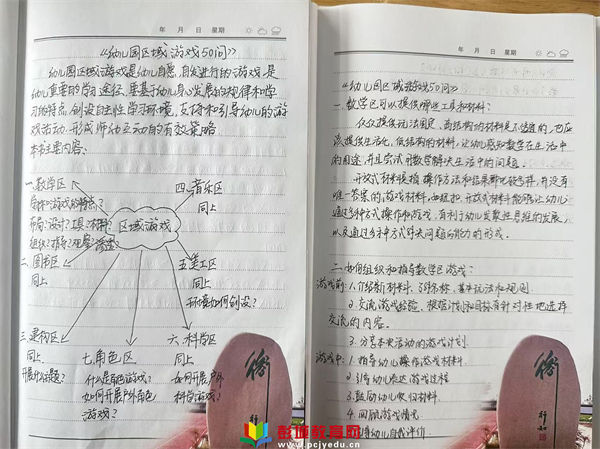 年 月 日 星期
《幼儿园区域游戏50问》
幼儿园区域游戏是幼儿自愿、自发进行的游戏,是
幼儿重要的学习途径,要基于幼儿身心发展的规律和学
习的特点,创设自主性学习环境,支持和引导幼儿的游
戏活动,形成师幼互动的有效策略。
本书主要内容:
一.数学区
游戏的特点?
布局?设计?工具?材料?
组织?指导?观察?
二.图书区
同上
三.建构区
同上
区域游戏
四.音乐区
同上
五.美工区
同上
环境如何创设?
六.科学区
同上
如何开展户外
科学游戏?
七.角色区
什么是角色游戏?
如何开展户外角色
游戏?
年 月 日 星期
《幼儿园区域游戏50问》
一.数学区可以提供哪些工具和材料?
仅仅提供玩法固定、高结构的材料是不够的,也应
该提供生活化、低结构的材料,让幼儿感知数学在生活中
的用途,并且尝试用数学解决生活中的问题。
开放式材料是指操作方法和结果都比较多样,并没有
唯一答案的游戏材料,如纽扣。开放式材料能够让幼儿
通过多种方式操作和游戏,有利于幼儿发散性思维的发展,
以及通过多种方式解决问题的能力的形成。
二.如何组织和指导数学区游戏?
游戏前:1.介绍新材料、名称、基本玩法和规则.
2.交流游戏经验,根据计划和目标有针对性地选择
交流的内容.
3.分享本次活动的游戏计划.
游戏中:1.指导幼儿操作游戏材料.
2.引导幼儿表达游戏过程
3.鼓励幼儿收归材料.
4.回顾游戏情况
导幼儿自我评价
行知
彭城教育网
www.pcjyedu.cn